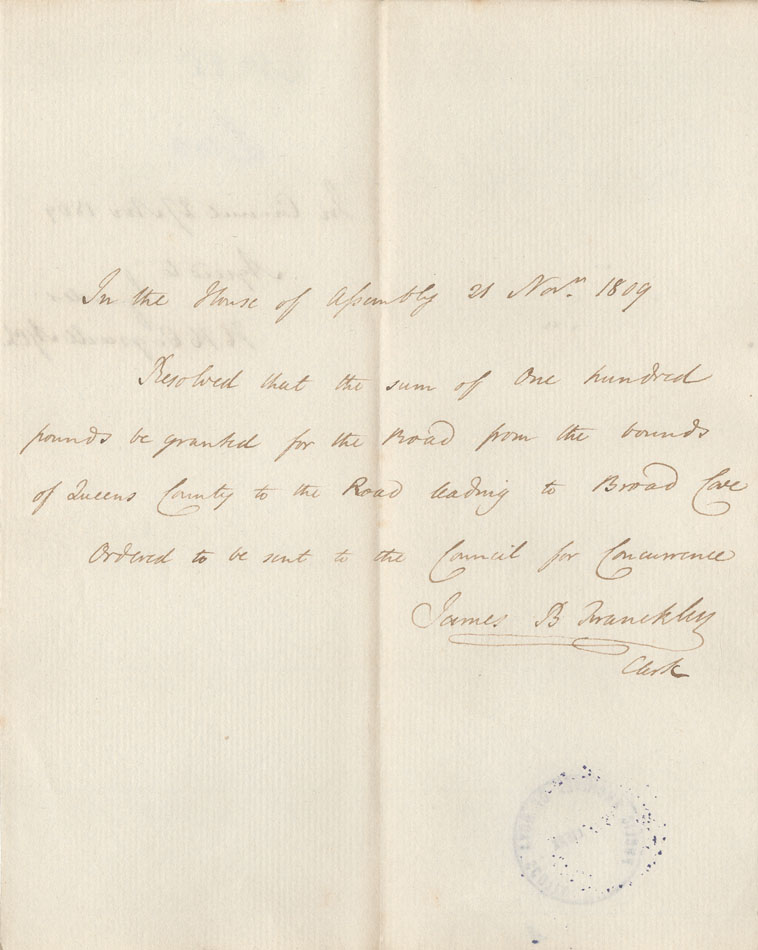 In the House of Assembly 21 Novr. 1809
Resolved that the sum of One hundred
pounds be granted for the Road from the bounds
of Queens County to the Road leading to Broad Cove
Ordered to be sent to the Council for Concurrence
James B Franckley
Clerk